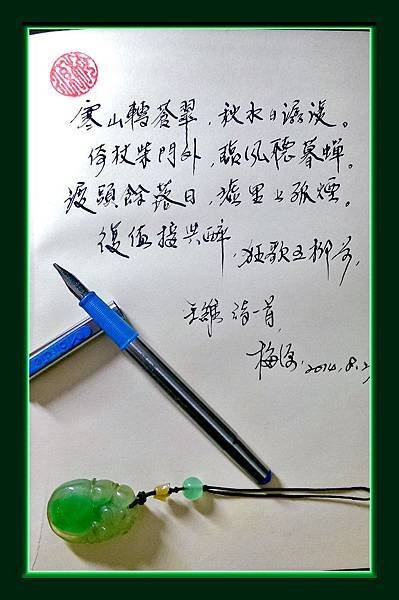 寒山轉蒼翠,秋水日潺湲。
倚杖柴門外,臨風聽暮蟬。
渡頭餘落日,墟里上孤煙。
復值接輿醉,
狂歌五柳前,
王維 詩一首,
梅 2014.8.2